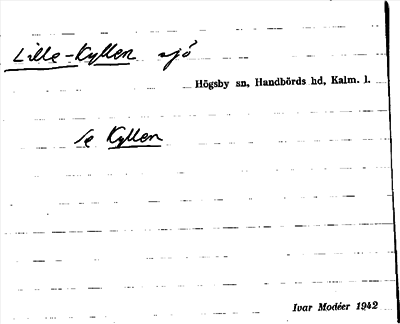 Lille-Kyllen sjö
Högsby sn, Handbörds hd, Kalm. l.
se Kyllen
Ivar Modéer 1942